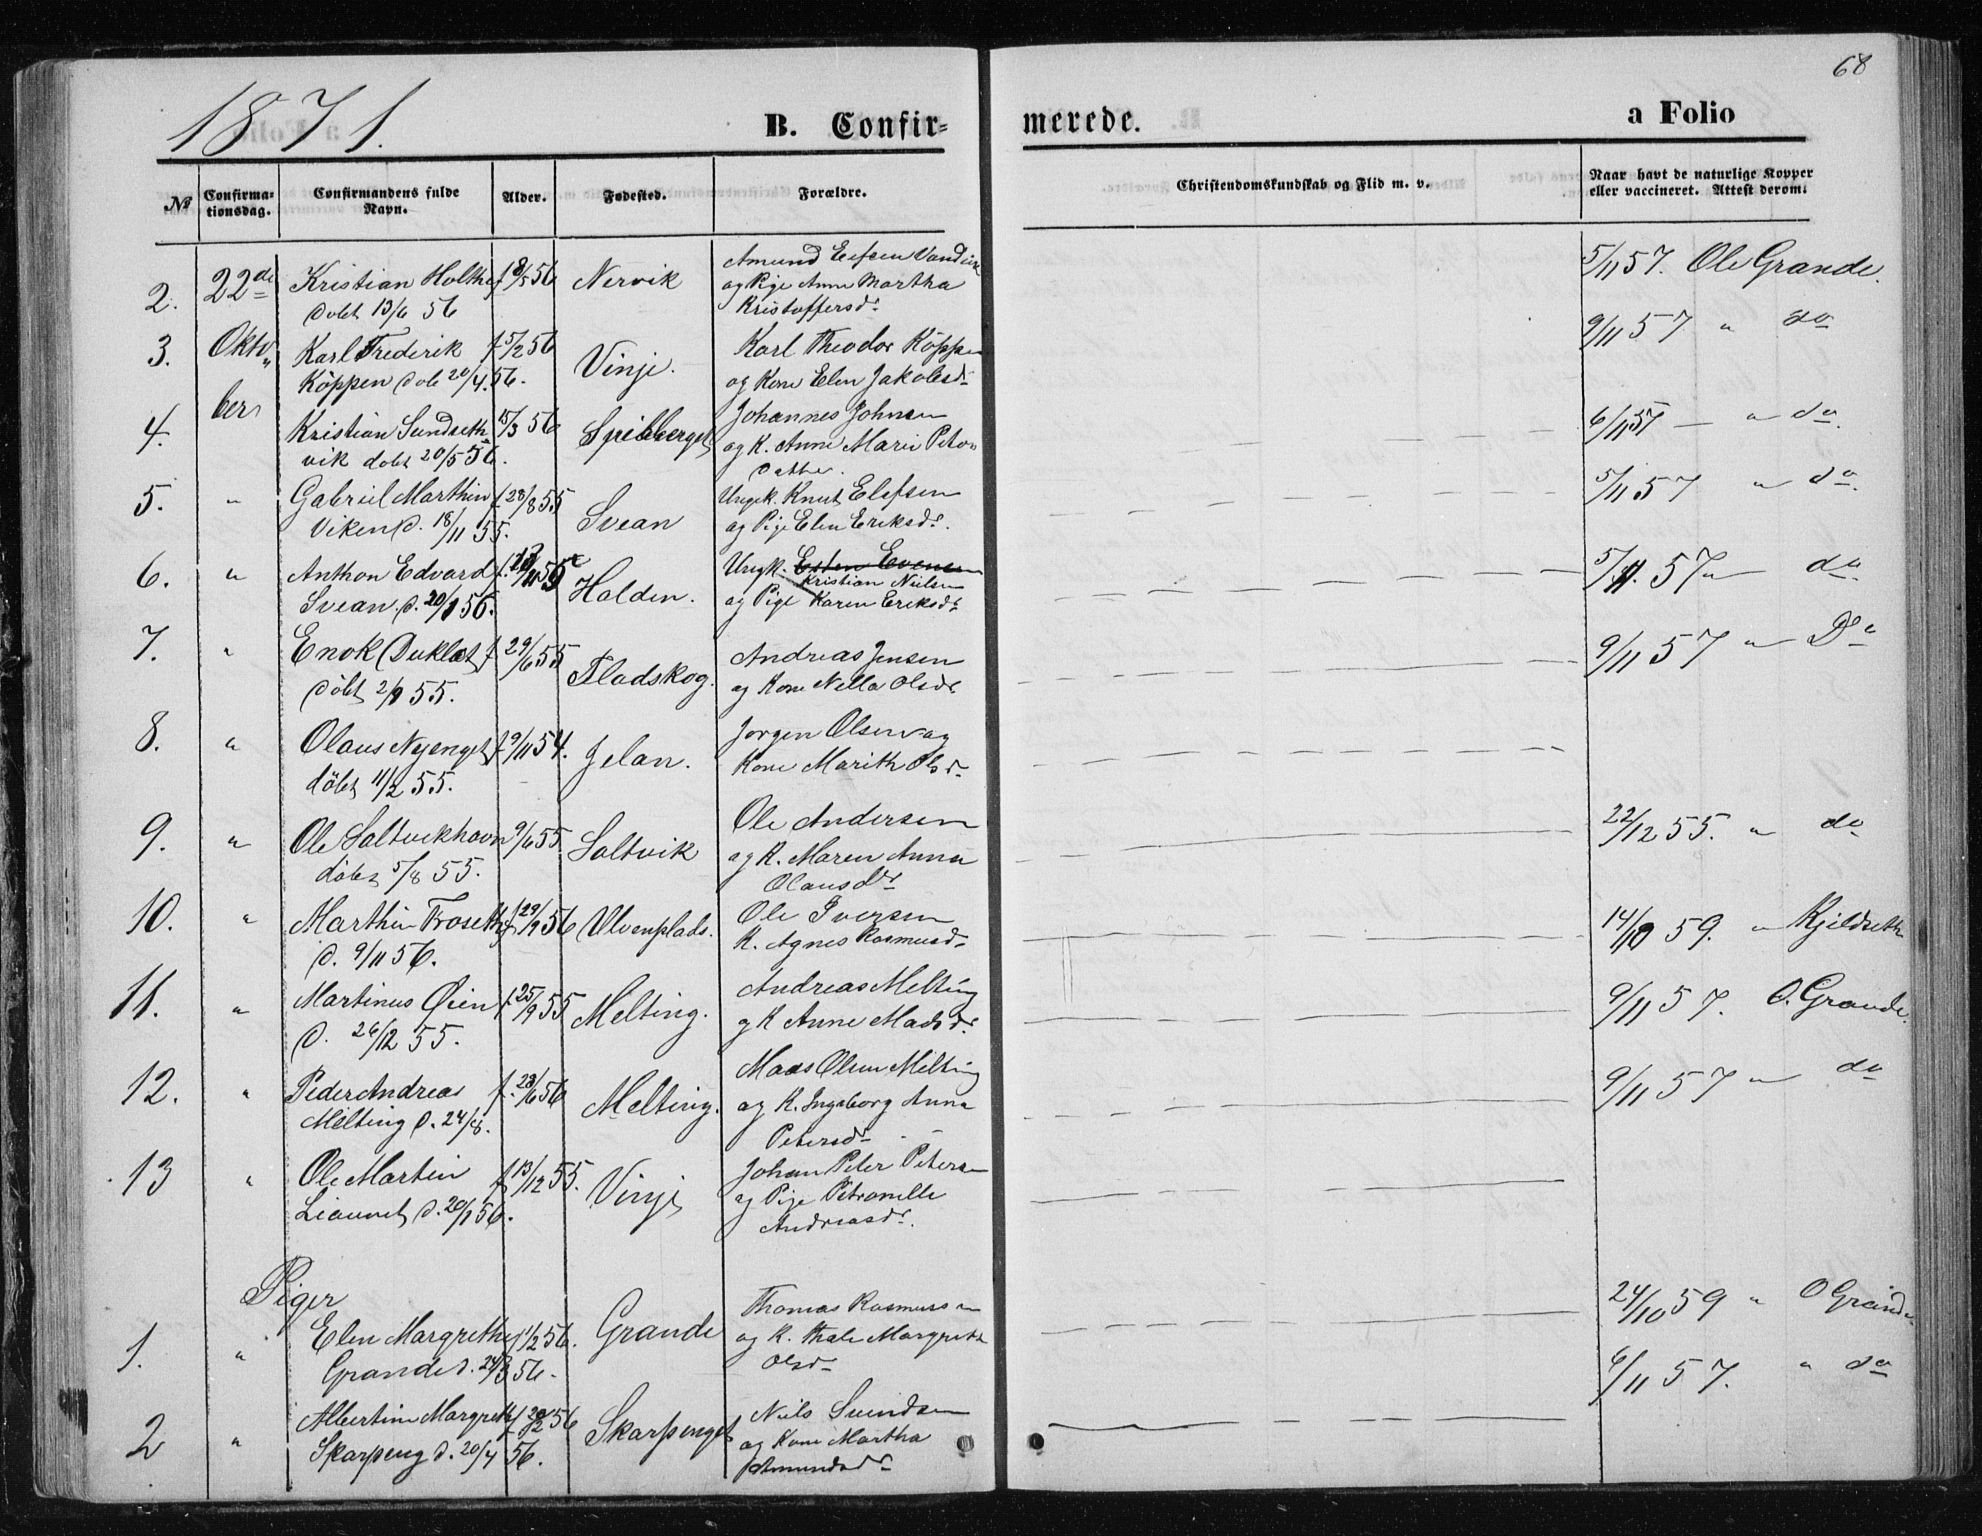 68
1871.
B. Confir-
merede.
a Folio
№
Confirma-
tionsdag.
Confirmandens fulde
Navn.
Alder.
Fødested.
Forældre.
Christendomskundskab og Flid m. v.
Naar havt de naturlige Kopper
eller vaccineret. Attest derom.
2. 22de Kristian Holthe f 8/5 56 Nervik Amund Eefsen
døbt 13/6 56 og Pige Anne Martha
Kristoffersdr
5/11 57. Ole Grande.
3. Okto„ Karl Frederik f 5/2 56 Vinje. Karl Theodor Köppen
Köppen døb 20/4 56. og Kone Elen Jakobsdr
9/11 57 " do
4. ber Kristian Sundseth 15/3 56 Johannes Johnsen
vik døbt 20/5 56. og K. Anne Marie Peters
datter.
6/11 57 — " do.
5. " Gabriel Marthin f 28/8 55 Svean Ungk. Knut Elefsen
Viken d. 18/11 55. og Pige Elen Eriksdr.
5/11 57 " do.
6. " Anthon Edvard f. 13/11 55 Holden. Ungk. Esten Evensen
Kristian Nielsen
Svean d. 20/1 56. og Pige Karen Eriksdr
5/11. 57 " do.
7. " Enok Duklæt f 29/6 55 Fladskog. Andreas Jensen
døbt 2/9 55. og Kone Nella Olsdr
9/11 57 " Do
8. " Olaus Nyenget f 9/11 54. Jelan. Jørgen Olsen og
döbt 11/2 55. Kone Marith Olsdr
9. " Ole Saltvikhavn 9/6 55 Saltvik Ole Andersen
døbt 5/8 55. og K. Maren Anna
Olausdr
22/12 55. " do
10. " Marthin Troseth f 29/9 56 Ulvenplads. Ole Iversen
d. 9/11 56. K. Agnes Rasmusdr
14/10 59. " Kjeldseth
11. " Martinus Øien f. 25/9 55 Melting. Andreas Melting
d. 26/12 55. og K Anne Madsdr.
9/11 57. O. Grande.
12. " Peder Andreas f. 23/6 56 Melting. Mads Olsen Melting
Melting d. 24/8. og K. Ingeborg Anna
Petersdr
9/11 57 " do
13 " Ole Martin f 13/12 55. Vinje Johan Peter Petersen
d. 20/1 56. og Pige Petronelle
Andreasdr.
Piger
1. " Elen Margrethe f 1/2 56. Grande Thomas Rasmussen
Grande d. 24/3 56. og K. Thale Margrete
Olsdr
24/10 59 " O Grande
2 " Albertine Margreth f 29/2 56 Skarpenget Niels Svendsen
Skarpeng d. 20/4 56. og Kone Martha
Amundsdr
6/11 57. " do